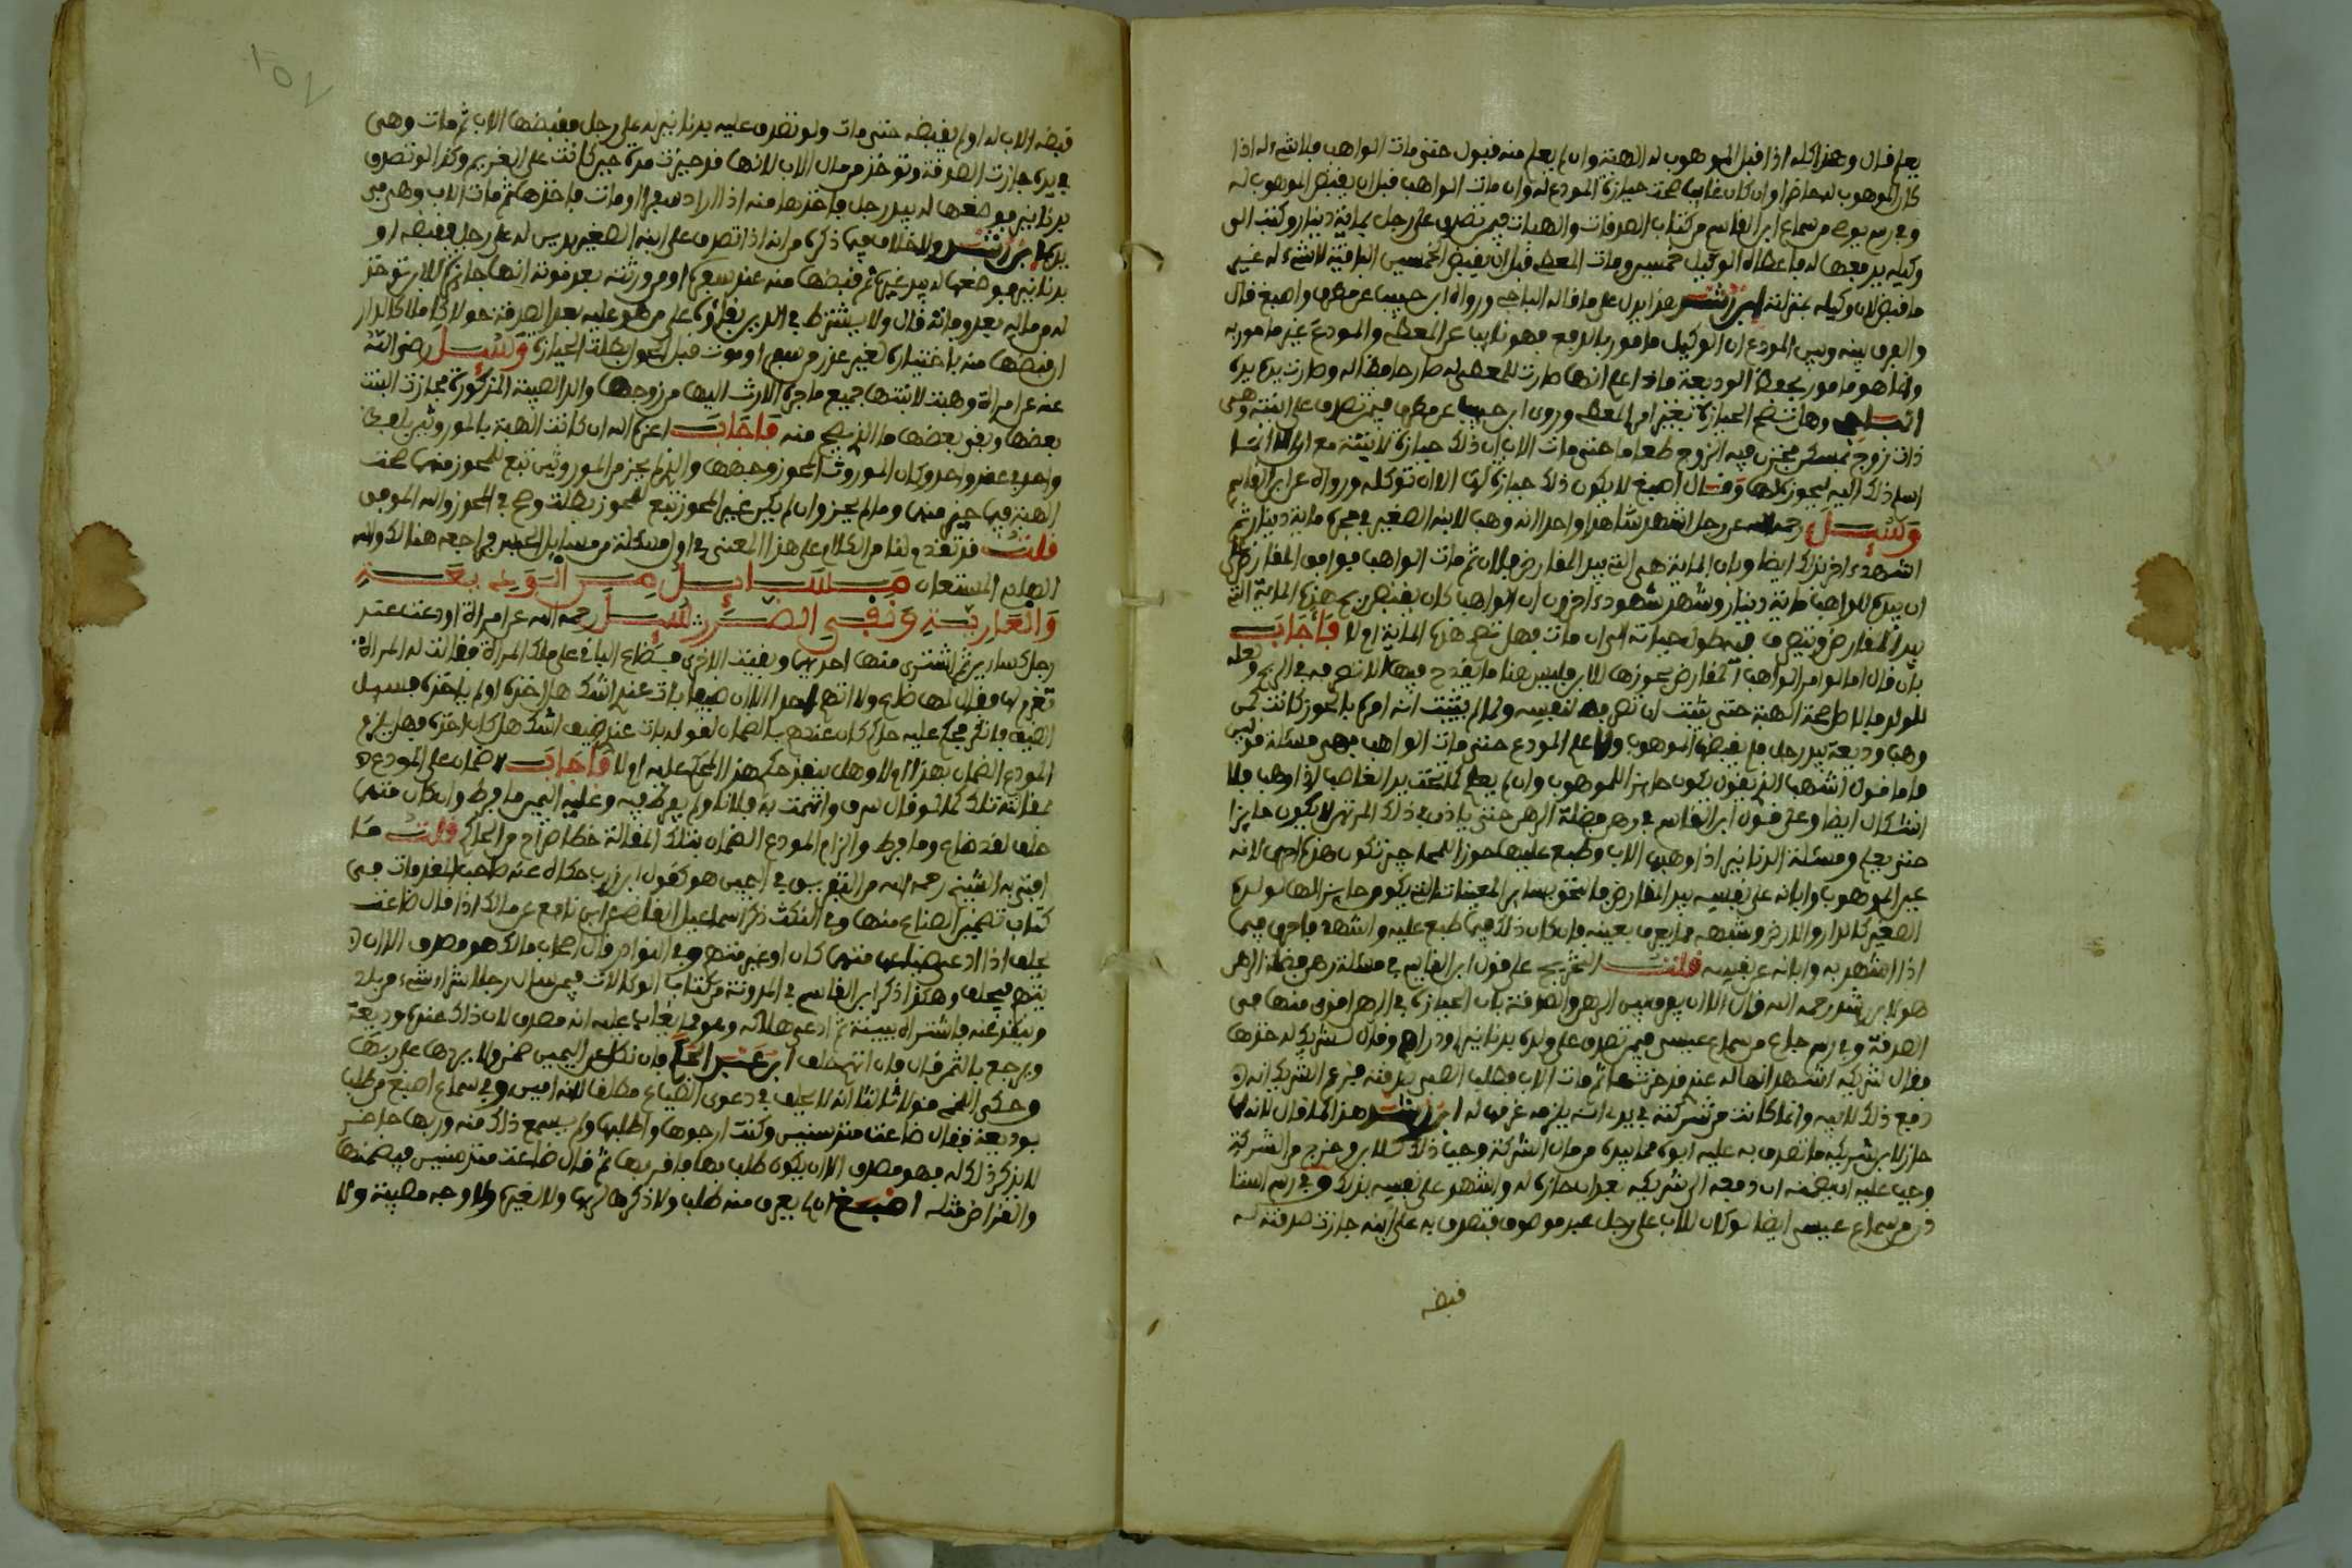 يعلم قال وهذا كله اذا قبل الموهوب له الهبة وان لم يعلم منه قبول حتى مات الواهب فلا شيء له اذا
كان الموهوب له حاضرا وان كان غايبا صحت حيازة المودع له وان مات الواهب قبل ان يقبض الموهوب له
وفي رسم يوصى من سماع ابن القاسم من كتاب الصدقات والهبات فيمن تصدق على رجل بماية دينار وكتب الى
وكيله يدفعها له فاعطاه الوكيل خمسين ومات المعطي قبل ان يقبض الخمسين الباقية لا شيء له غير
ما قبض لان وكيله بمنزلته ابن رشد هذا يدل على ما قاله الباجي ورواه ابن حبيب عن مطرف واصبغ قال
والفرق بينه وبين المودع ان الوكيل مامور بالدفع فهو نايب عن المعطي والمودع غير مامور به
وانما هو مامور بحفظ الوديعة فاذا علم انها صارت للمعطى له صار حافظا له وصارت يده يده
الباجي وهل تصح الحيازة بغير امر المعطي وروى ابن حبيب عن مطرف فيمن تصدق على ابنته وهي
ذات زوج بمسكن فخزن فيه الزوج طعاما حتى مات الاب ان ذلك حيازة لابنته مع
اسلم ذلك اليه ليحوز لها وقال اصبغ لا يكون ذلك حيازة لها الا ان توكله ورواه عن ابن القاسم
وسئل رحمه الله عن رجل اشهد شاهدا واحدا انه وهب لابنه الصغير في حجره ماية دينار ثم
اشهد اخر بذلك ايضا وبان الماية هي التي بيد المقارض فلان ثم مات الواهب فوافق المقارض على
ان بيده للواهب ماية دينار وشهد شهود اخرون ان الواهب كان يقبض ربح هذه الماية التي
بيد المقارض ويتصرف فيه طول حياته الى ان مات فهل تصح هذه الماية ام لا فأجاب
بان قال اما لو امر الواهب المقارض بحوزها للابن فليس هنا ما يقدح فيها الا تصرفه في الربح ولعله
للولد فالاصل صحة الهبة حتى يثبت ان تصرفه لنفسه ولما لم يثبت انه امره بالحوز كانت كمن
وهب وديعة بيد رجل فلم يقبض الموهوب ولا علم المودع حتى مات الواهب فهي مسئلة
فاما قول اشهب الذي يقول يكون حايزا للموهوب وان لم يعلم كما تحت يد الغاصب اذا وهب فلا
اشكال ايضا وعلى قول ابن القاسم في رهن فضلة الرهن حتى ياذن في ذلك المرتهن لا يكون حايزا
حتى يعلم ومسئلة الدنانير اذا وهبها الاب وطبع عليها حوزا لها حين تكون هذه احرى لانه
عين الموهوب وابانه على نفسه بيد المقارض فالتحق بساير المعينات التي يكون حايزا لها لولده
الصغير كالدار والارض وشبهه مما يعرف بعينه فان كان ذلك فيما طبع عليه واشهد فاحرى فيما
اذا اشهد به وابانه عن يده قلت التخريج على قول ابن القاسم في مسئلة رهن فضلة الرهن
هو لابن رشد رحمه الله قال الا ان يفرق بين الرهن والصدقة بان الحيازة في الرهن اقوى منها في
الصدقة وفي رسم جاع من سماع عيسى فيمن تصدق على ولده بدنانير او دراهم وقال لشريكه خذها
فقال شريكه اشهد انها له عندي قد حزتها ثم مات الاب فطلب الصبي صدقته فزعم الشريك انه
دفع ذلك لابيه وانما كانت من شركته في يديه انه يلزمه غرمها له ابن رشد هذا كما قال لانه
حاز لابن شريكه ما تصدق به عليه ابوه مما بيده من مال الشركة وجب ذلك للابن وخرج من الشركة
وجب عليه ان يضمنه ان دفعه الى شريكه بعد ان حازه له واشهد على نفسه بذلك وفي رسم استا
ذن من سماع عيسى ايضا لو كان للاب على رجل عبد موصوف فتصدق به على ابنه جازت صدقته له
قبضه
قبضه الاب له او لم يقبضه حتى مات ولو تصدق عليه بدنانير له على رجل فقبضها الاب ثم مات وهي
في يده جازت الصدقة وتوخذ من مال الاب لانها قد حيزت مرة حين كانت على الغريم وكذا لو تصدق
بدنانير فوضعها له بيد رجل فاخذها منه اذ اراد سفرا او مات فاخذها ثم مات الاب وهي في
يده ابن رشد ولا خلاف فيما ذكره من انه اذا تصدق على ابنه الصغير بدين له على رجل فقبضه او
بدنانير فوضعها له بيد غيره ثم قبضها منه عند سفره او من ورثته بعد موته انها جايزة للابن توخذ
له من ماله بعد وفاته قال ولا يشترط في الدين بقاؤه على من هو عليه بعد الصدقة حولا كاملا كالدار
ان قبضها منه باختياره لغير عذر من سفر او موت قبل الحول بطلت الحيازة وسئل رضي الله
عنه عن امراة وهبت لابنتها جميع ما جره الارث اليها من زوجها والد الصبية المذكورة فحازت البنت
بعضها وبقي بعضها ما الذي يصح منه فأجاب اعزكم الله ان كانت الهبة بالموروثين بلفظ
واحد في عقد واحد وكان الموروث المحوز وجهها والذي لم يحز من الموروثين تبع للمحوز منهما صحت
الهبة فيما حيز منهما وما لم يحز وان لم يكن غير المحوز تبع للمحوز بطلت وصح في المحوز والله الموفق
قلت قد تقدم لنا من الكلام على هذا المعنى في اول مسئلة من مسايل الحبس فراجعه هنالك والله
العلام المستعان مسايل من الوديعة
والعارية ونفي الضرر سئل رحمه الله عن امراة اودعت عند
رجل كساءين ثم اشترى منها احدهما وبقيت الاخرى فضاع الباقي على ملك المراة فقالت له المراة
تغرم لي فقال لها ضاع ولا اتهم احدا الا ان ضيفا بات عندي اشك هل اخذه او لم ياخذه فسيل
الضيف فانكر فحكم عليه حاكم كان عندهم بالضمان لقوله بات عندي ضيف اشك هل كان اخذه فهل يلزم
المودع الضمان بهذا ام لا وهل ينفذ حكم هذا المحكم عليه ام لا فأجاب لا ضمان على المودع
بمقالته تلك كما لو قال سرق واتهمت به فلانا ولم يفرط فيه وعليه اليمين ما فرط وان كان متهما
حلف لقد ضاع وما فرط والزام المودع الضمان بتلك المقالة خطا صراح من الحاكم قلت ما
افتى به الشيخ رحمه الله من التفريق في اليمين هو كقول ابن زرب حكاه عنه صاحب المقدمات في
كتاب تضمين الصناع منها وفي النكث ذكر اسماعيل القاضي عن ابن نافع عن مالك اذا قال ضاعت
يحلف اذا ادعى ضياعه متهما كان او غير متهم وفي النوادر قال اصحاب مالك هو مصدق الا ان
يتهم فيحلف وهكذا ذكر ابن القاسم في المدونة من كتاب الوكالات فيمن سال رجلا شراء شيء من بلد
وينقد عنه فاشتراه ببينة ثم ادعى هلاكه وهو مما يغاب عليه انه مصدق لان ذلك عنده وديعة
ويرجع بالثمن قال فان اتهم حلف ابن عبد الحكم فان نكل عن اليمين ضمن ولا يردها على ربها
وحكى اللخمي قولا ثالثا انه لا يحلف في دعوى الضياع مطلقا لانه امين وفي سماع اصبغ من طلب
بوديعة فقال ضاعت منذ سنين وكنت ارجوها واطلبها ولم يسمع ذلك منه وربها حاضر
لا يذكر ذلك له فهو مصدق الا ان يكون طلب بها فاقر بها ثم قال ضاعت منذ سنين فيضمنها
والقراض مثله اصبغ ان لم يعرف منه طلب ولا ذكرها لربها ولا لغيره ولا وجه مصيبة ولا